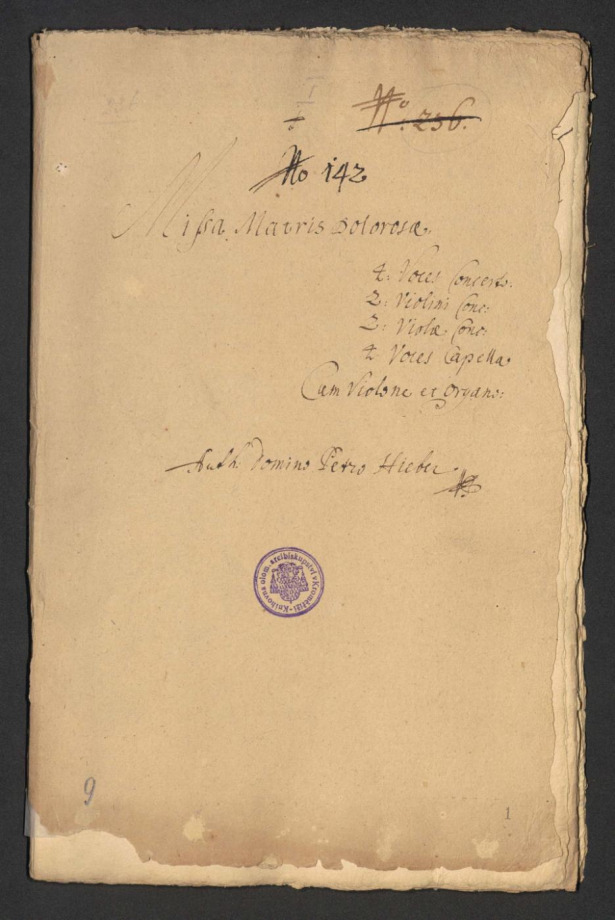 No: 236.
No 142
Missa Matris Dolorosæ.
4: Voces Concert:
2: Violini Conc:
2: Violæ Conc:
4 Voces Capella.
Cum Violone et Organo:
Auth: Domino Petro Hieber.
Knihovna olom. arcibiskupství v Kroměříži
9
1